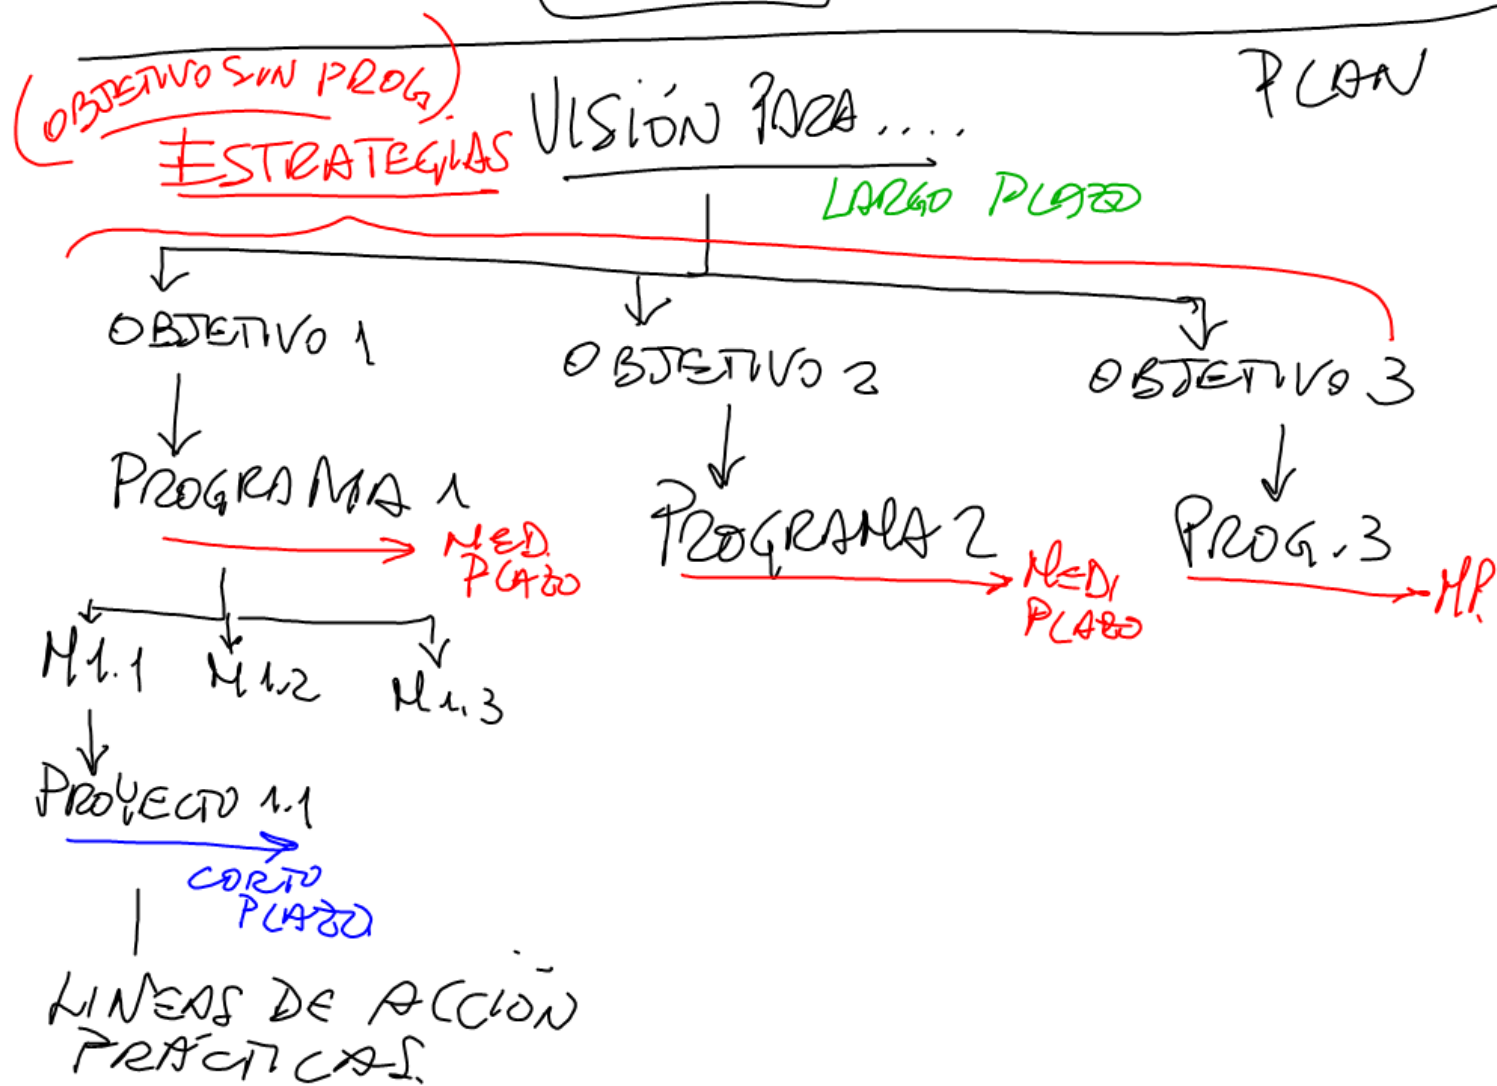 PLAN
(OBJETIVO SIN PROG.)
ESTRATEGIAS
VISIÓN PARA....
LARGO PLAZO
OBJETIVO 1
OBJETIVO 2
OBJETIVO 3
PROGRAMA 1
MED.
PLAZO
PROGRAMA 2
MEDI
PLAZO
PROG. 3
MP.
M1.1
M1.2
M1.3
PROYECTO 1.1
CORTO
PLAZO
LINEAS DE ACCIÓN
PRÁCTICAS.